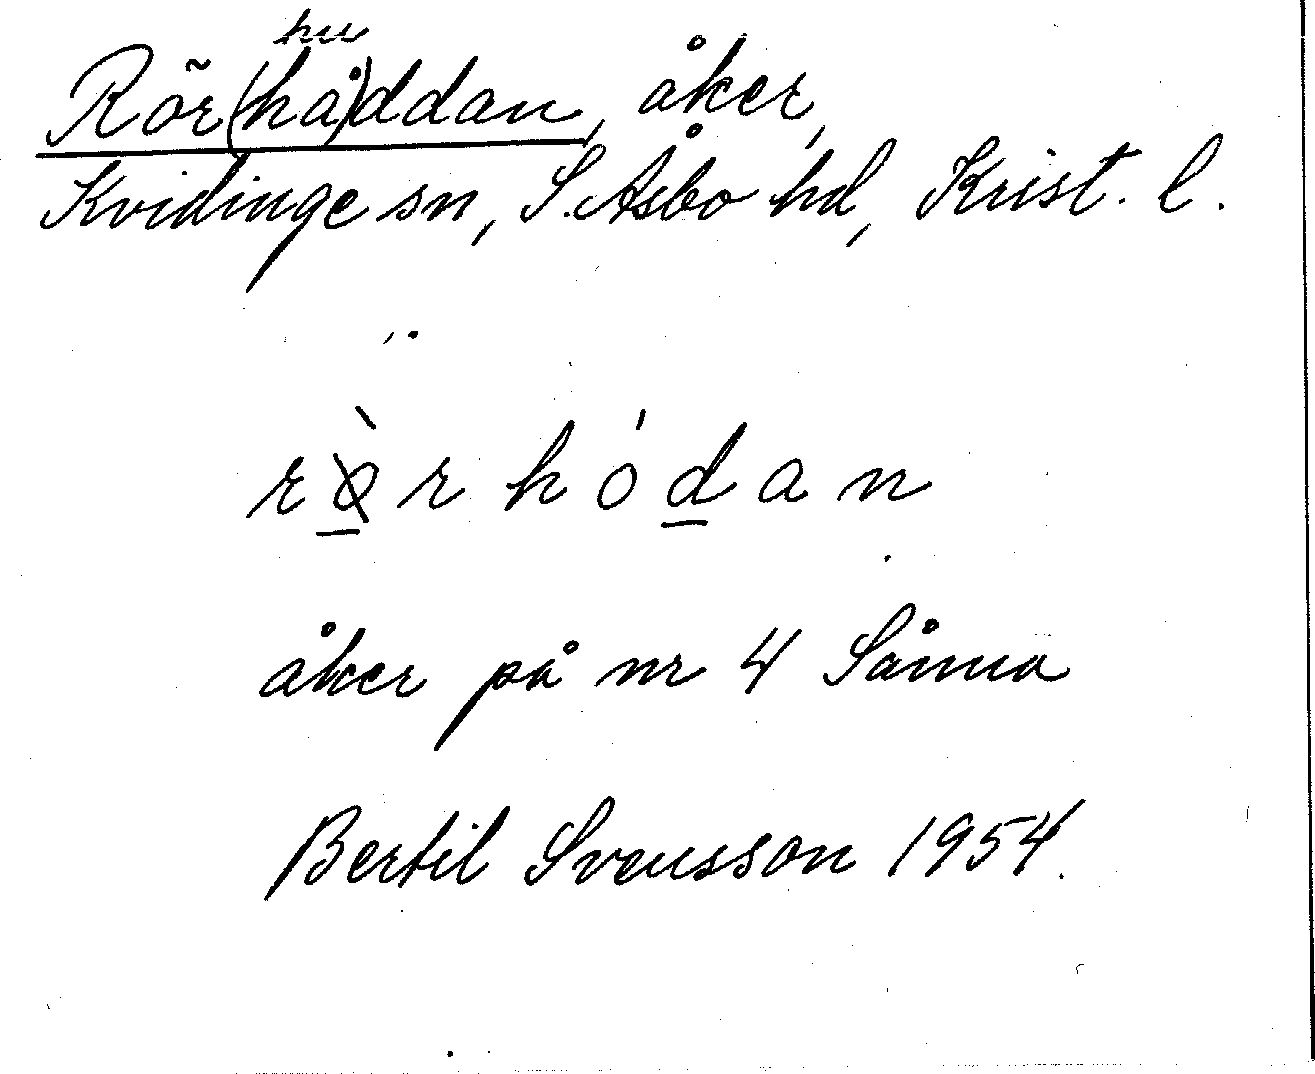 hu
Rör(hå)ddan, åker,
Kvidinge sn, S. Åsbo hd, Krist. l.
rø̀r hódan
åker på nr 4 Sånna
Bertil Svensson 1954.